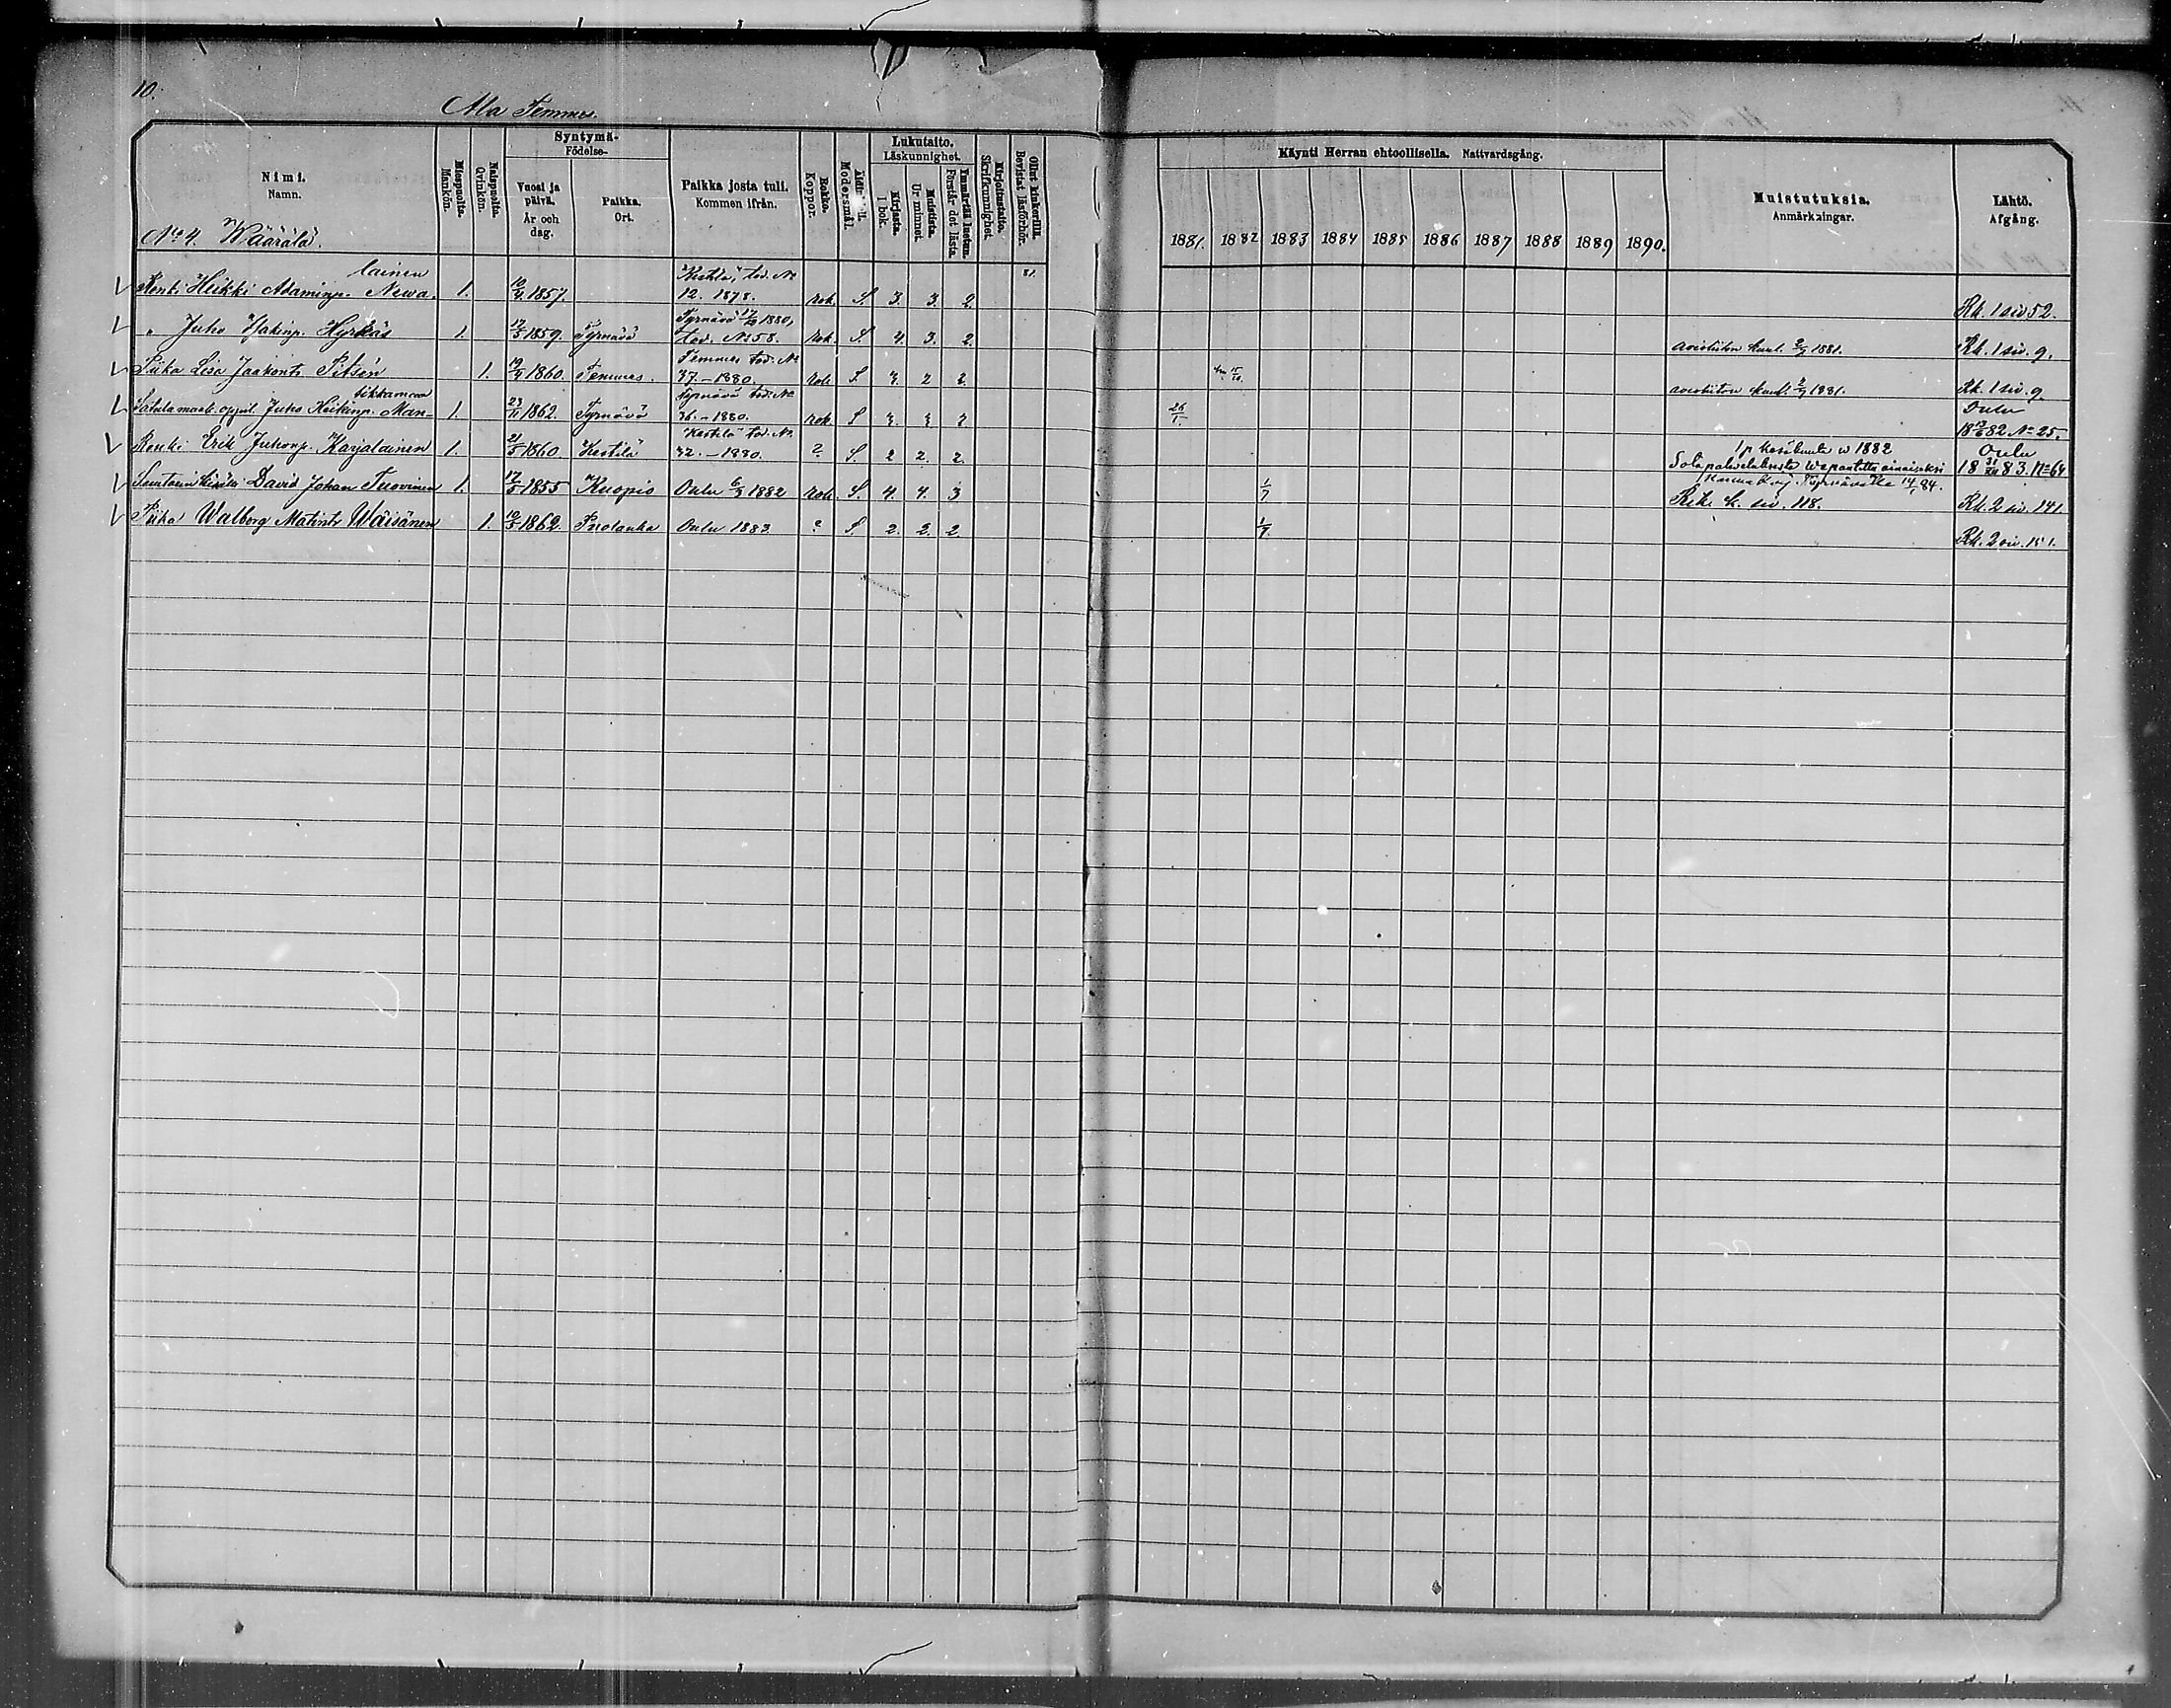 10.
Ala Temmes.
Nimi.
Namn.
Miespuolia.
Mankön.
Naispuolia.
Qvinkön.
Syntymä-
Födelse-
Vuosi ja
päivä.
År och
dag.
Paikka.
Ort.
Paikka josta tuli.
Kommen ifrån.
Rokko.
Koppor.
Modersmål.
Lukutaito.
Läskunnighet.
Kirjasta.
I bok.
Muistista.
Ur minnet.
Ymmärtää luetun.
Förstår det lästa.
Kirjoitustaito.
Skrifkunnighet.
Ollut kinkerillä.
Bevistat läsförhör.
Käynti Herran ehtoollisella. Nattvardsgång.
1881. 1882 1883 1884 1885 1886 1887 1888 1889 1890.
Muistutuksia.
Anmärkningar.
Lähtö.
Afgång.
No 4. Wäärälä.
lainen Kestilä, tod. No 81.
Renki Heikki Adaminp. Newa- 1. 10/4 1857. 12. 1878. rok. S. 3. 3. 2. Rk. 1 siv 52.
Tyrnävä 17/12 1880,
" Juho Isakinp. Hyrkäs 1. 17/5 1859. Tyrnävä tod. No 58. rok. S. 4. 3. 2. avioliiton kuul. 2/7 1881. Rk. 1 siv. 9.
Temmes tod. No
Piika Lisa Jaakonts Pitsin 1. 19/9 1860. Temmes. 37.-1880. rok S. 3. 2 2. 15/10. avioliiton kuul. 2/7 1881. Rk. 1 siv. 9.
sikkamaa Tyrnävä tod. No Oulu
oppil Juho Heikinp. Man- 1. 23/11 1862. Tyrnävä 36.-1880. rok S 3. 3 2 26/1. 18 82 No 25.
Kestilä tod. No. 1/p kesäkuuta w 1882 Oulu
Renki Erik Juhonp. Karjalainen 1. 21/5 1860. Kestilä 32.-1880. ? S. 2 2. 2. Sotapalweluksesta wapautettu ainaiseksi 18 31/12 83. No 64
Tyrnävältä 14/1 84.
David Johan Tuovinen 1. 17/5 1855 Kuopio Oulu 6/3 1882 rok. S. 4. 4. 3 1/7 Rik. k. siv. 118. Rk. 2 siv. 141.
Piika Walborg Matints Wäisänen 1. 10/5 1862. Puolanka Oulu 1883 ? S. 2. 2. 2 1/7. Rk. 2 siv. 151.